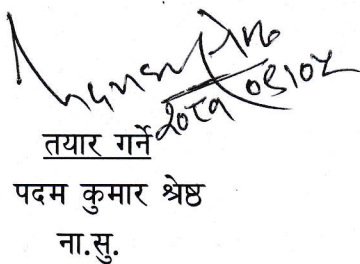 २०८१
तयार गर्ने
पदम कुमार श्रेष्ठ
ना.सु.